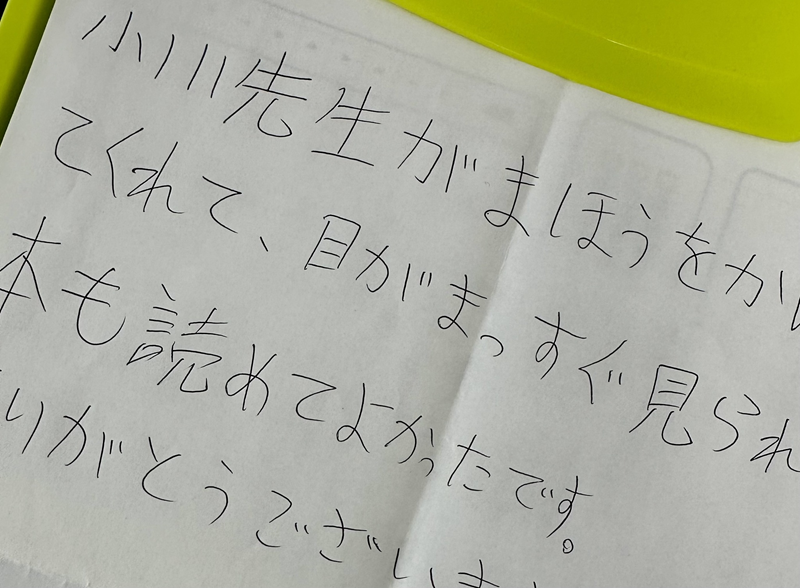 小川先生がまほうをか
てくれて、目がまっすぐ見られ
本も読めてよかったです。
りがとうございま